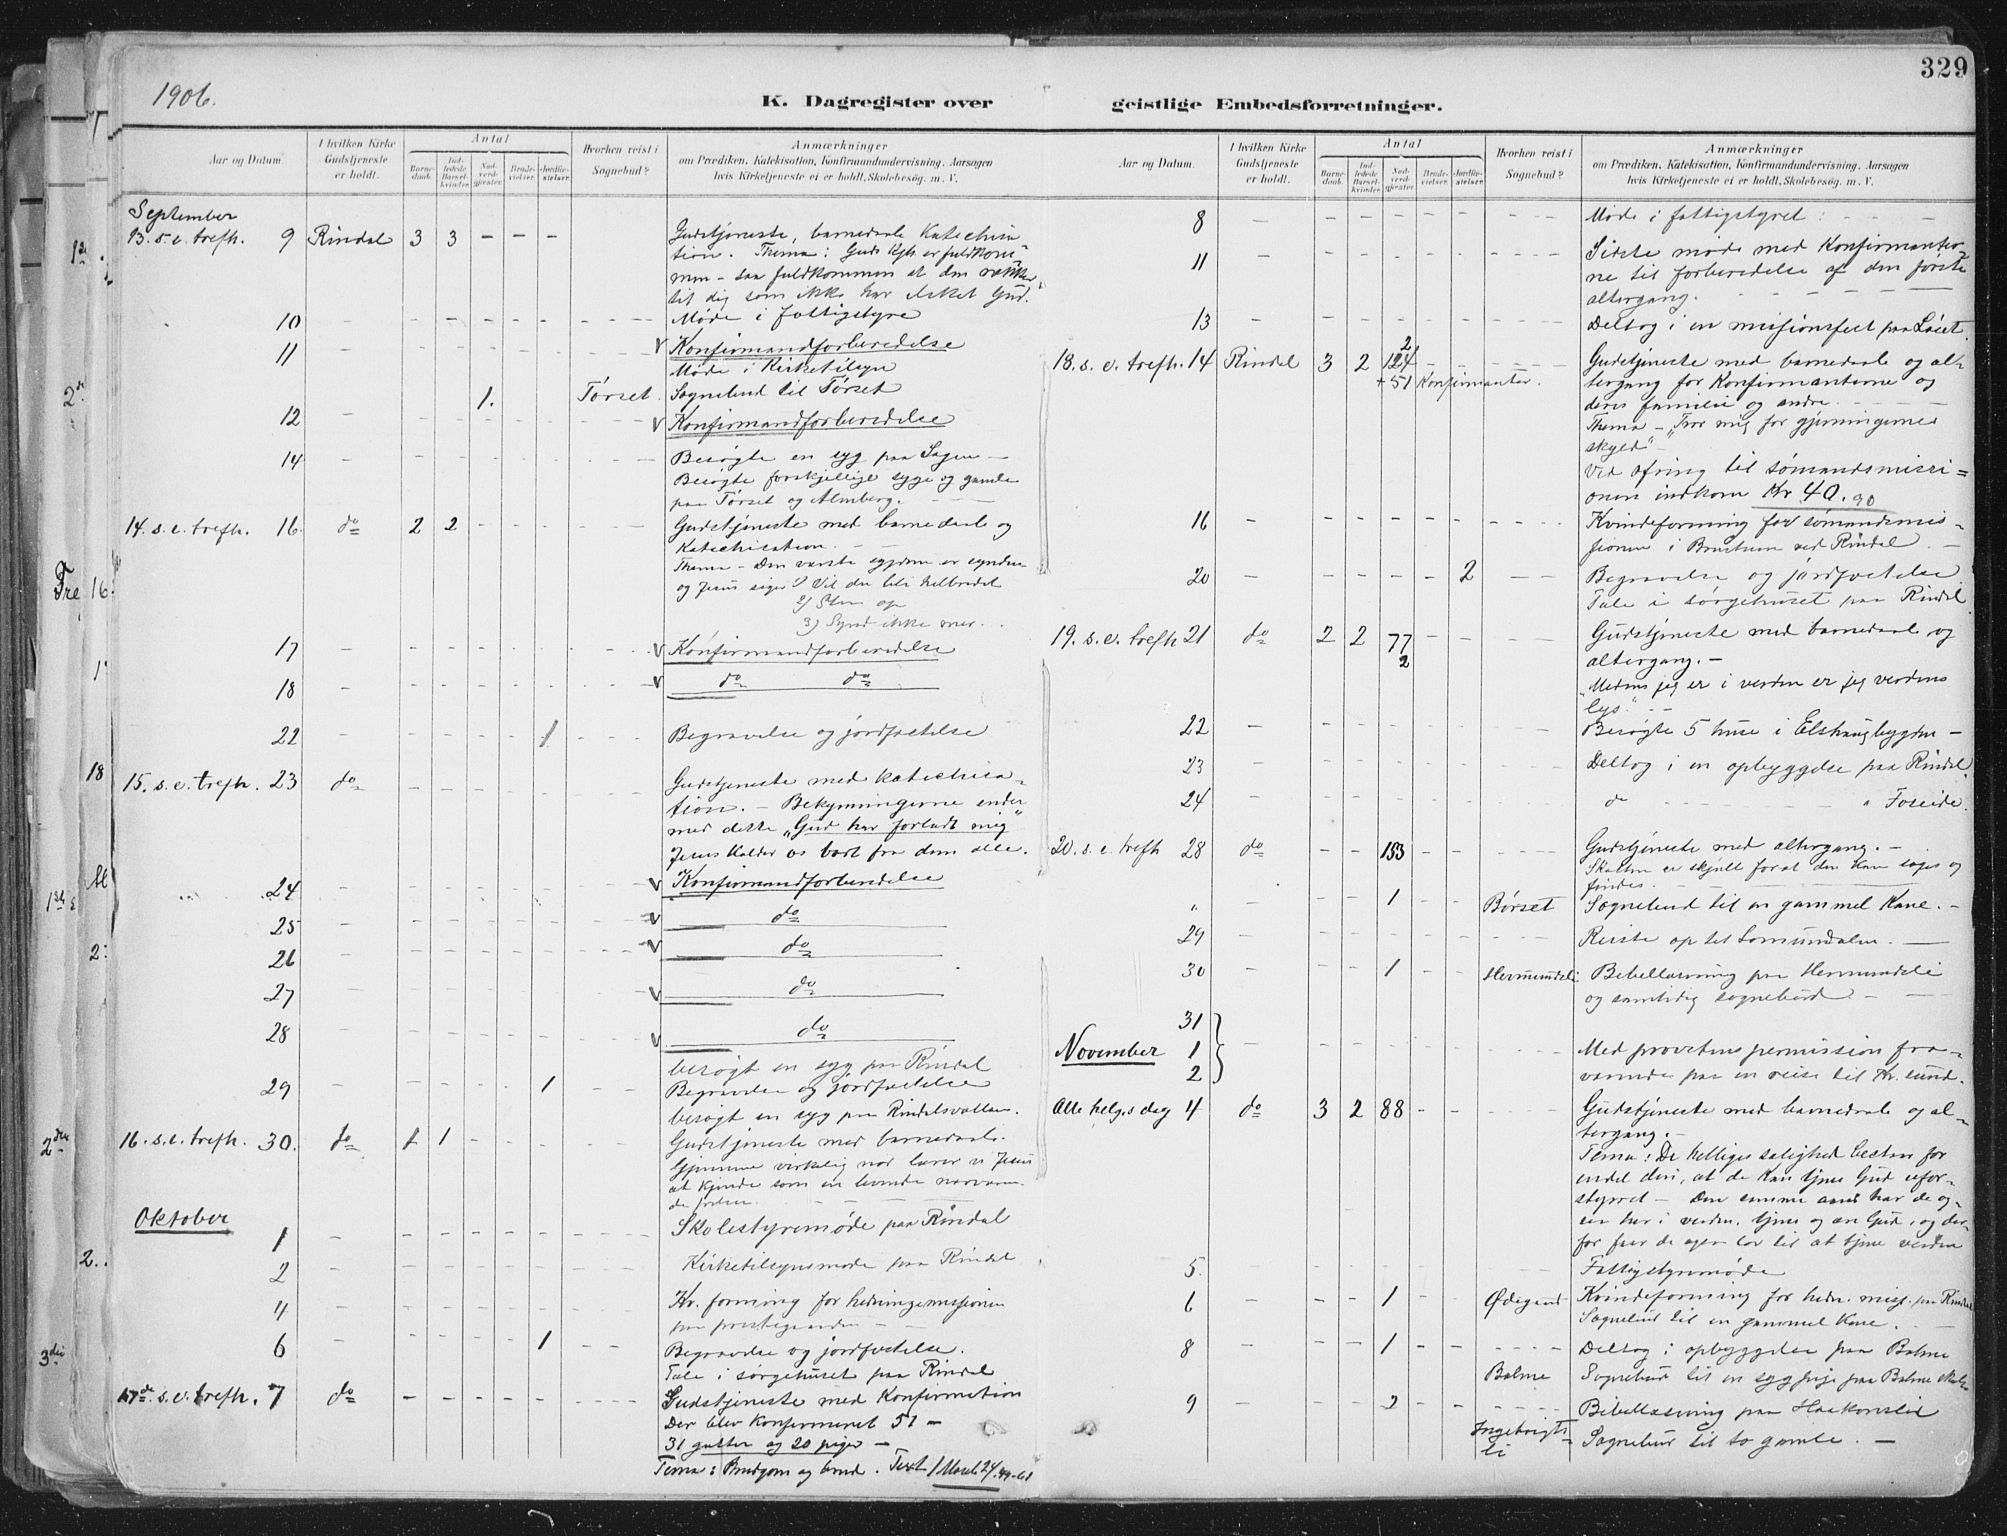 329
1906.
K. Dagregister over geistlige Embedsforretninger.
Aar og Datum.
I hvilken Kirke Gudstjeneste er holdt.
Antal
Barnedaab.
Indledede Barselkvinder.
Nadverdgjester.
Brudevielser.
Jordfæstelser.
Hvorhen reist i Sognebud?
Anmærkninger
om Prædiken, Katekisation, Konfirmandundervisning, Aarsagen
hvis Kirketjeneste ei er holdt, Skolebesøg. m. V.
September
13. s. e. trefh. 9 Rindal 3 3 - - - Gudstjeneste, barnedaab Katechisa
tion. Thema: Guds Kjh. er fuldkom
men - saa fuldkommen at den rækker
til dig som ikke har elsket Gud.
10 Møde i Fattigstyre
11 V Konfirmandforberedelse
Møde i Kirketilsyn
1. Tørset. Sognebud til Tørset
12 V Konfirmandforberedelse
14 Besøgte en syg paa Sagen -
Besøgte forskjellige syge og gamle
paa Tørset og Almberg.
14. s. e. trefh. 16. do 2 2 Gudstjeneste med barnedaab og
Katechisation.
Thema - Den værste sygdom er synden
og Jesus siger 1) Vil du bli helbredet
2) Staa op
3) Synd ikke mer.
17 V Konfirmandforberedelse
18 V do do
22 1 Begravelse og jordfæstelse
15. s. e. trefh. 23 do Gudstjeneste med katechisa-
tion. - Bekymringerne ender
med dette "Gud har forladt mig"
Jesus kalder os bort fra dem alle.
24 V Konfirmandforberedelse
25 V do
26 V do
27 V do
28 V do
besøgt en syg paa Rindal
29 1 Begravelse og jordfæstelse
besøgt en syg paa Rindalsvollen.
16. s. e. trefh. 30. do 1 1 Gudstjeneste med barnedaab.
virkelig naar lærer vi Jesus
at kjende som en levende nærværen
de frelser.
Oktober
1 Skolestyremøde paa Rindal
2 Kirketilsynsmøde paa Rindal
4 Kv. forening for hedningemissionen
paa prestegaarden
6 1 Begravelse og jordfæstelse.
Tale i sørgehuset paa Rindal
17de s. e. trefh. 7 do - - - - - Gudstjeneste med Konfirmation
Der blev Konfirmeret 51 -
31 gutter og 20 piger -
Tema: Brudgom og brud. Text
Aar og Datum.
I hvilken Kirke Gudstjeneste er holdt.
Antal
Barnedaab.
Indledede Barselkvinder.
Nadverdgjester.
Brudevielser.
Jordfæstelser.
Hvorhen reist i Sognebud?
Anmærkninger
om Prædiken, Katekisation, Konfirmandundervisning, Aarsagen
hvis Kirketjeneste ei er holdt, Skolebesøg. m. V.
8 Møde i fattigstyret
11 Sidste møde med Konfirmanter-
ne til forberedelse af den første
altergang.
13 Deltog i en missionsfest paa Løset.
18. s. e. trefh. 14 Rindal 3 2 124 2 Gudstjeneste med barnedaab og al-
+ 51 Konfirmanter. tergang for Konfirmanterne og
deres familie og andre.
Thema - "Tror mig for gjerningernes
skyld"
Ved ofring til sømandsmissi=
onen indkom Kr 40.90
16 Kvindeforening for sømandsmis-
sionen i ved Rindal.
20 2 Begravelse og jordfæstelse
Tale i sørgehuset paa Rindal
19. s. e. trefh 21 do 2 2 77 2 Gudstjeneste med barnedaab og
altergang. -
"Medens jeg er i verden er jeg verdens
lys."
22 Besøgte 5 huse i Elshaugbygden -
23 Deltog i en opbyggelse paa Rindal.
24 do " Foseide.
20. s. e. trefh 28 do 153 Gudstjeneste med altergang. -
Skatten er skjult forat den kan søges og
findes.
" 1 Børset Sognebud til en gammel Kone. -
29 Reiste op til Lomundalen.
30 1 Hermundsli Bibellæsning paa Hermundsli
og samtidig sognebud -
31
November 1 Med provstens permission fra-
2 værende paa en reise til Kr. sund.
Alle helgsdag 4 do 3 2 88 Gudstjeneste med barnedaab og al-
tergang. -
Tema: De helliges salighed bestaar for
endel deri, at de kan tjene Gud ufor-
styrret - Den samme aand har de og-
saa her i verden, tjene og ære Gud, og der-
for faar de ogsaa lov til at tjene verden
5. Fattigstyremøde
6 1 Ødegaard Kvindeforening for hedn. miss. paa Rindal
Sognebud til en gammel Kone.
8 1 Deltog i opbyggelse paa Bolme
Bolme Sognebud til en syg pige paa Bolme
9 2 Bibellæsning paa Haakonsli
Ingebrigts-
li Sognebud til to gamle. -
1ste
2den
3die
Fre 16
18
2.